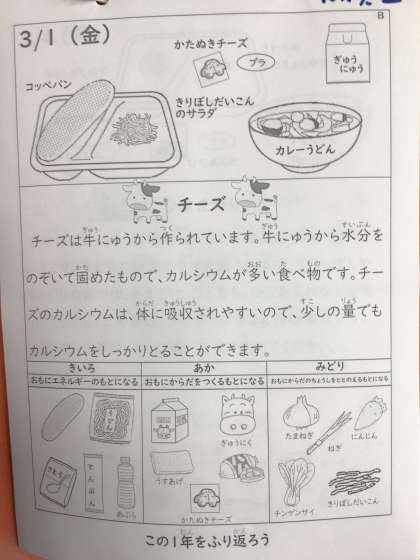 B
3/1(金)
かたぬきチーズ
プラ
ぎゅう
にゅう
コッペパン
きりぼしだいこん
のサラダ
カレーうどん
チーズ
チーズは牛にゅうから作られています。牛にゅうから水分を
のぞいて固めたもので、カルシウムが多い食べ物です。チー
ズのカルシウムは、体に吸収されやすいので、少しの量でも
カルシウムをしっかりとることができます。
きいろ あか みどり
おもにエネルギーのもとになる おもにからだをつくるもとになる おもにからだのちょうしをととのえるもとになる
うどん
ぎゅうにく
たまねぎ
ねぎ
にんじん
さとう
でんぷん
あぶら
うすあげ
かたぬきチーズ
チンゲンサイ
きりぼしだいこん
この1年をふり返ろう